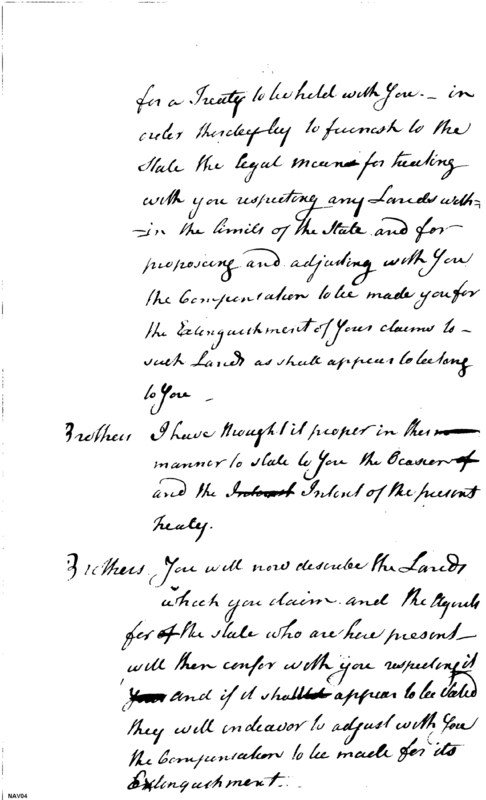 for a Treaty to be held with You. – in
order thereby to furnish to the
State the legal means for treating
with you respecting any Lands with=
=in the limits of the State and for
proposing and adjusting with You
the Compensation to be made you for
the Extinguishment of Your claims to –
such Lands as shall appear to belong
to You –
Brothers I have thought it proper in this
manner to state to You the Occasion
and the Interest Intent of the present
Treaty.
Brothers, You will now describe the Lands
which you claim and the Agents
for of the state who are here present –
will then confer with you respecting it
and if it shall appear to be valid
they will endeavor to adjust with You
the Compensation to be made for its
Extinguishment.
NAV04